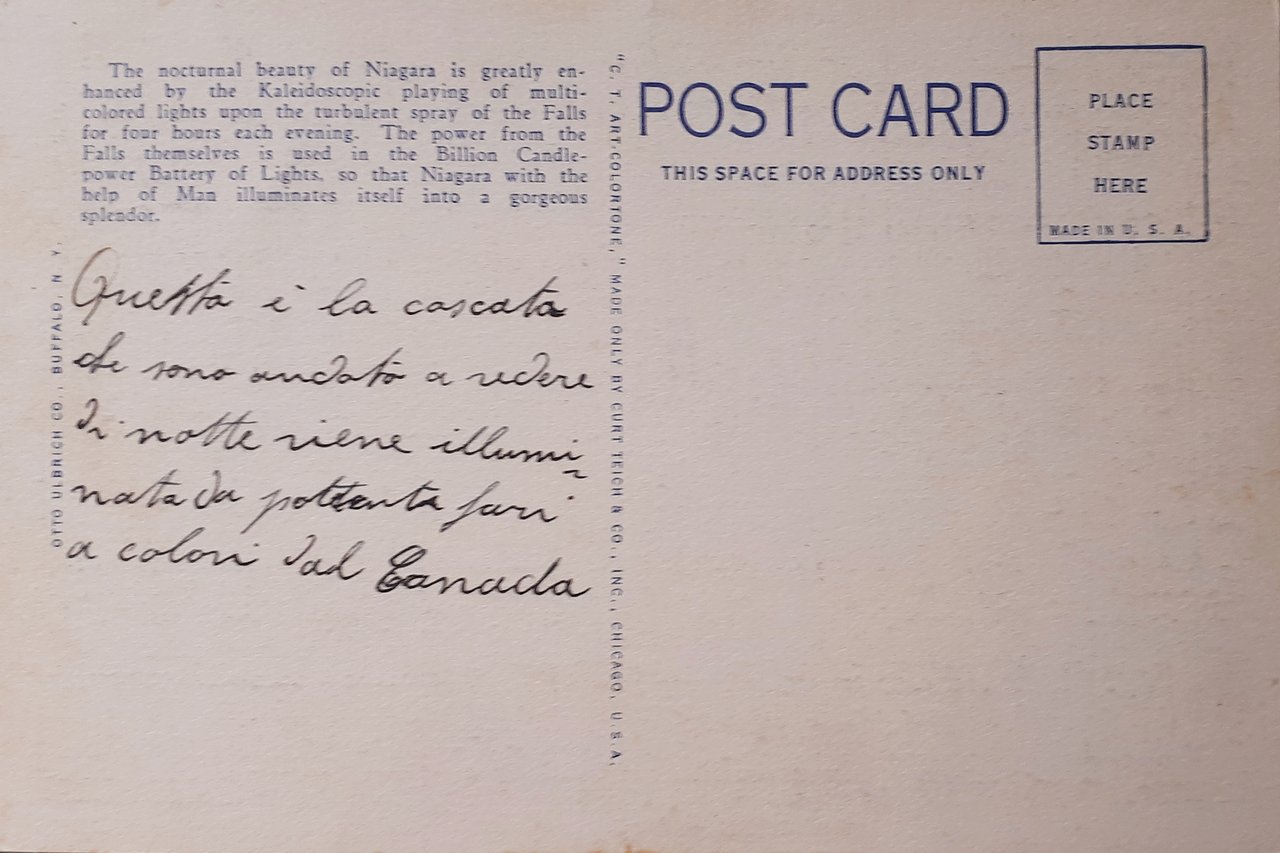 The nocturnal beauty of Niagara is greatly en-
hanced by the Kaleidoscopic playing of multi-
colored lights upon the turbulent spray of the Falls
for four hours each evening. The power from the
Falls themselves is used in the Billion Candle-
power Battery of Lights, so that Niagara with the
help of Man illuminates itself into a gorgeous
splendor.
Questa è la cascata
che sono andato a vedere
di notte viene illumi-
nata da potenti fari
a colori dal Canada
OTTO ULBRICH CO., BUFFALO, N. Y.
"C. T. ART-COLORTONE," MADE ONLY BY CURT TEICH & CO., INC., CHICAGO, U.S.A.
POST CARD
THIS SPACE FOR ADDRESS ONLY
PLACE
STAMP
HERE
MADE IN U. S. A.